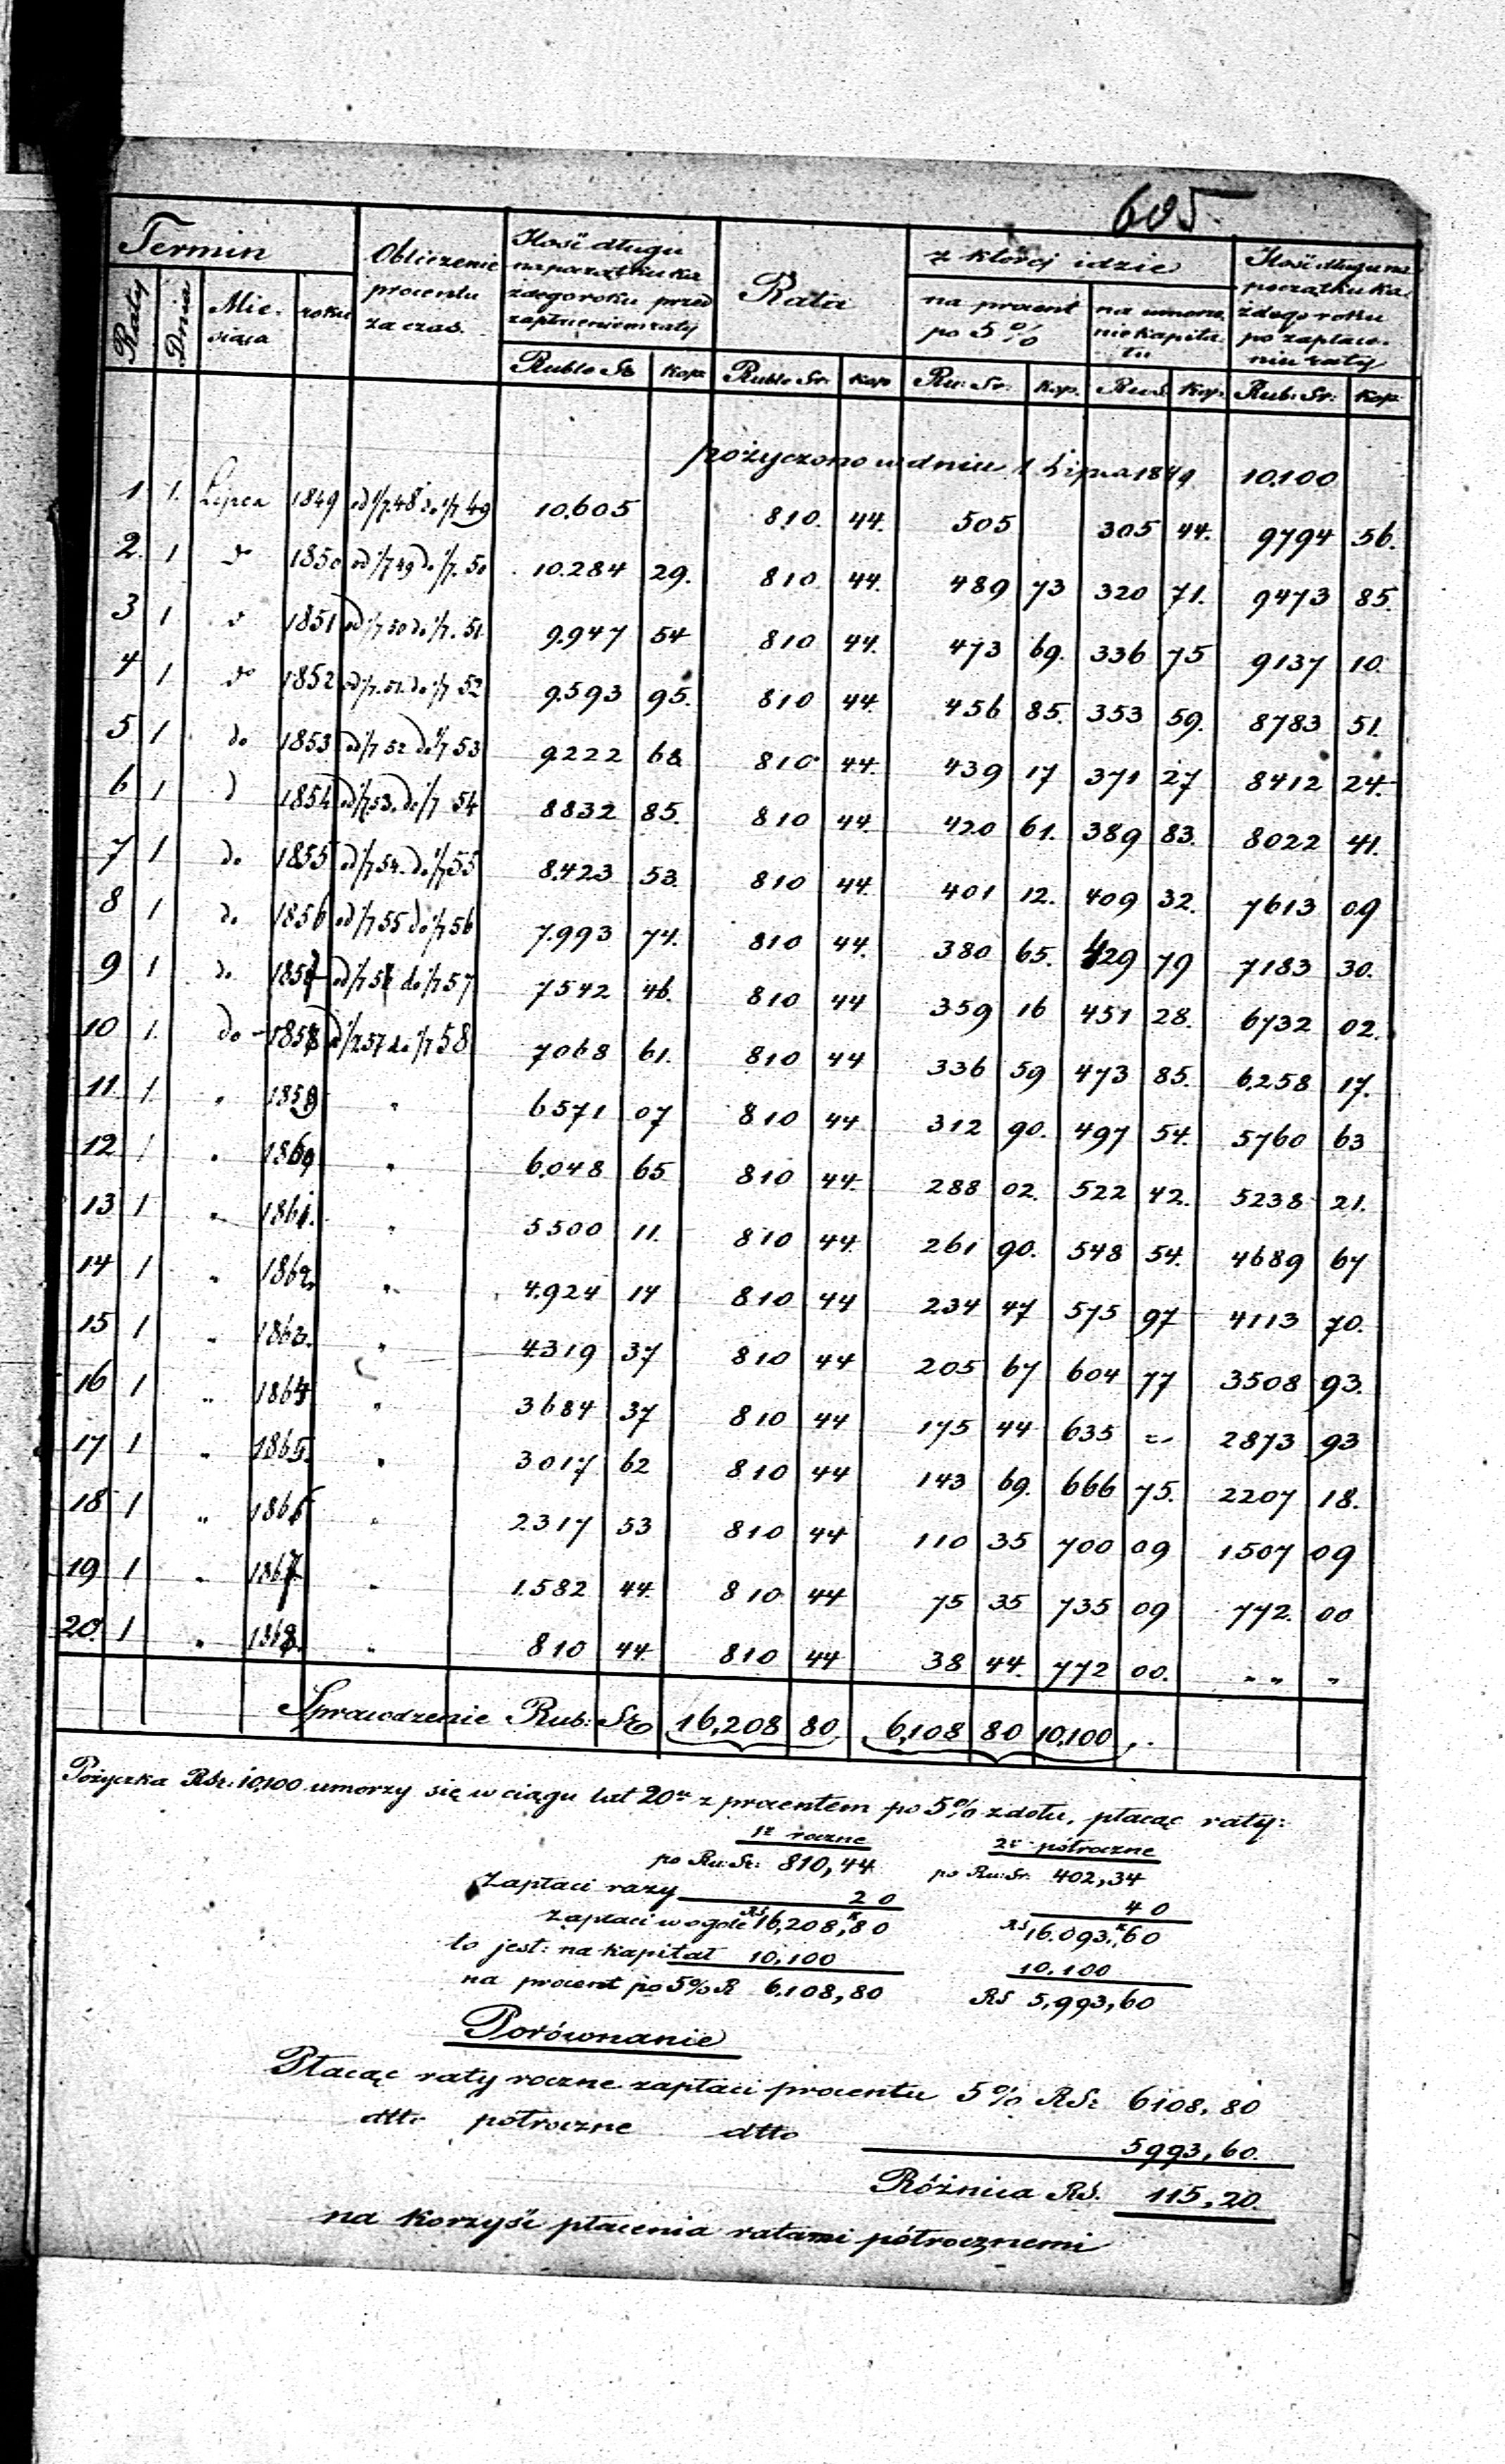 605.
Termin Obliczenie procentu za czas. Ilość długu na początku każdego roku przed zapłaceniem raty Rata z której idzie Ilość długu na początku każdego roku po zapłaceniu raty
Raty Dnia Miesiąca roku na procent po 5% na umorzenie kapitału
Ruble Sr Kop Ruble Sr: Kop Ru: Sr: Kop. Ru S Kop. Rub: Sr: Kop
pożyczono w dniu 1 Lipca 1849 10.100
1 1. Lipca 1849 od 1/7.48 do 1/7 49 10.605 810. 44. 505 305 44. 9794 56.
2. 1 do 1850 od 1/7 49 do 1/7. 50 10.284 29. 810 44. 489 73 320 71. 9473 85.
3 1 do 1851 od 1/7 50 do 1/7. 51 9.947 54 810 44. 473 69. 336 75 9137 10.
4 1 do 1852 od 1/7. 51. do 1/7 52 9.593 95. 810 44. 456 85. 353 59. 8783 51.
5 1 do 1853 od 1/7 52 do 1/7 53 9222 68 810 44. 439 17 371 27 8412 24.
6 1 d 1854 od 1/7.53. do 1/7 54 8832 85. 810 44 420 61. 389 83. 8022 41.
7 1 do 1855 od 1/7 54. do 1/7 55 8.423 53. 810 44. 401 12. 409 32. 7613 09
8 1 do 1856 od 1/7 55 do 1/7 56 7.993 74. 810 44. 380 65. 429 79 7183 30.
9 1 do 1857 od 1/7 56 do 1/7 57 7542 46. 810 44 359 16 451 28. 6732 02.
10 1. do 1858 od 1/7.57 do 1/7 58 7068 61. 810 44 336 59 473 85. 6.258 17.
11. 1. " 1859 " 6571 07 810 44 312 90. 497 54. 5760 63
12 1 " 1860 " 6.048 65 810 44. 288 02. 522 42. 5238 21.
13 1 " 1861. " 5500 11. 810 44. 261 90. 548 54. 4689 67
14 1 " 1862 " 4.924 14 810 44 234 47 575 97 4113 70.
15 1 " 1863. " 4.319 37 810 44 205 67 604 77 3508 93.
16 1 " 1864 " 3684 37 810 44 175 44 635 = 2873 93
17 1 " 1865. " 3017 62 810 44 143 69. 666 75. 2207 18.
18 1 " 1866 " 2317 53 810 44 110 35 700 09 1.507 09
19 1 " 1867. " 1.582 44. 810 44 75 35 735 09 772. 00
20. 1 " 1868. " 810 44. 810 44 38 44. 772 00. " " "
Sprawdzenie Rub: Sr 16,208 80. 6,108 80 10,100 "
Pożyczka RSr: 10,100 umorzy się w ciągu lat 20tu z procentem po 5% z dołu, płacąc raty:
1e roczne 2e półroczne
po Ru: Sr: 810,44 po Ru: Sr: 402,34
Zapłaci razy 20 40
Zapłaci w ogóle RS 16,208,K80 RS 16.093.K60
to jest: na kapitał 10,100 10.100
na procent po 5% R 6,108,80 RS 5,993,60
Porównanie
Płacąc raty roczne zapłaci procentu 5% RSr 6108,80
dtto półroczne dtto 5993,60.
Różnica RS. 115,20.
na korzyść płacenia ratami półrocznemi